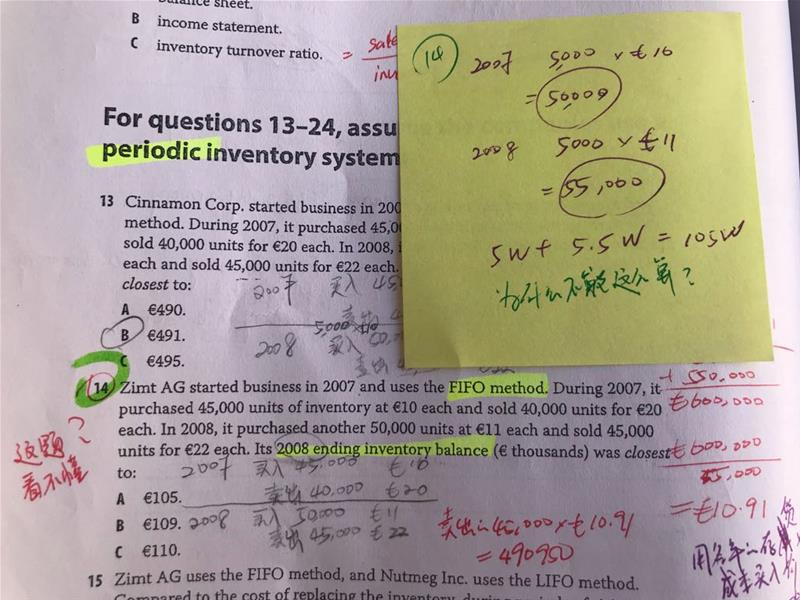 balance sheet.
B income statement.
C inventory turnover ratio.
= sale
inv
For questions 13–24, assu
periodic inventory system
13 Cinnamon Corp. started business in 200
method. During 2007, it purchased 45,0
sold 40,000 units for €20 each. In 2008, i
each and sold 45,000 units for €22 each.
closest to:
A €490.
B €491.
C €495.
2007 买入 45
卖出 4
5,000 × €10
2008 买入
卖出
14
2007 5,000 × €10
= 50,000
2008 5000 × €11
= 55,000
5W + 5.5W = 105W
为什么不能这么算?
14 Zimt AG started business in 2007 and uses the FIFO method. During 2007, it
purchased 45,000 units of inventory at €10 each and sold 40,000 units for €20
each. In 2008, it purchased another 50,000 units at €11 each and sold 45,000
units for €22 each. Its 2008 ending inventory balance (€ thousands) was closest
to:
A €105.
B €109.
C €110.
这题?
看不懂
2007 买入 45,000 €10
卖出 40,000 €20
2008 买入 50,000 €11
卖出 45,000 €22
+ 550,000
€600,000
€600,000
55,000
= €10.91
卖出 45,000 × €10.91
= 490950
用各年的存货
成本买入
15 Zimt AG uses the FIFO method, and Nutmeg Inc. uses the LIFO method.
Compared to the cost of replacing the inventory, during